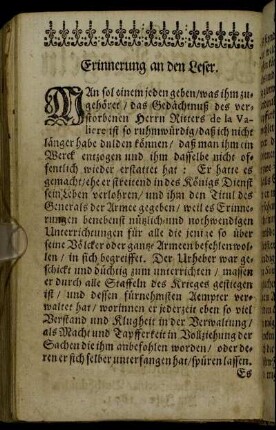 Erinnerung an den Leser.
MAn sol einem jeden geben / was ihm zu-
gehöret / das Gedächtnuß des ver-
storbenen Herrn Ritters de la Va-
liere ist so ruhmwürdig / daß ich nicht
länger habe dulden können / daß man ihm ein
Werck entzogen und ihm dasselbe nicht öf-
fentlich wieder erstattet hat: Er hatte es
gemacht / ehe er streitend in des Königs Dienst
sein Leben verlohren / und ihm den Titul des
Generals der Armee gegeben / weil es Erinne-
rungen benebenst nützlich und nothwendigen
Unterrichtungen für alle die jenize so über
seine Völcker oder gantze Armeen befehlen wol-
len / in sich begreiffet. Der Urheber war ge-
schickt und düchtig zum unterrichten / massen
er durch alle Staffeln des Krieges gestiegen
ist / und dessen fürnehmsten Aempter ver-
waltet har / worinnen er jederzeit eben so viel
Verstand und Klugheit in der Verwaltung /
als Macht und Tapfferkeit in Vollziehung der
Sachen die ihm anbefohlen worden / oder de-
ren er sich selber unterfangen hat / spüren lassen.
Es